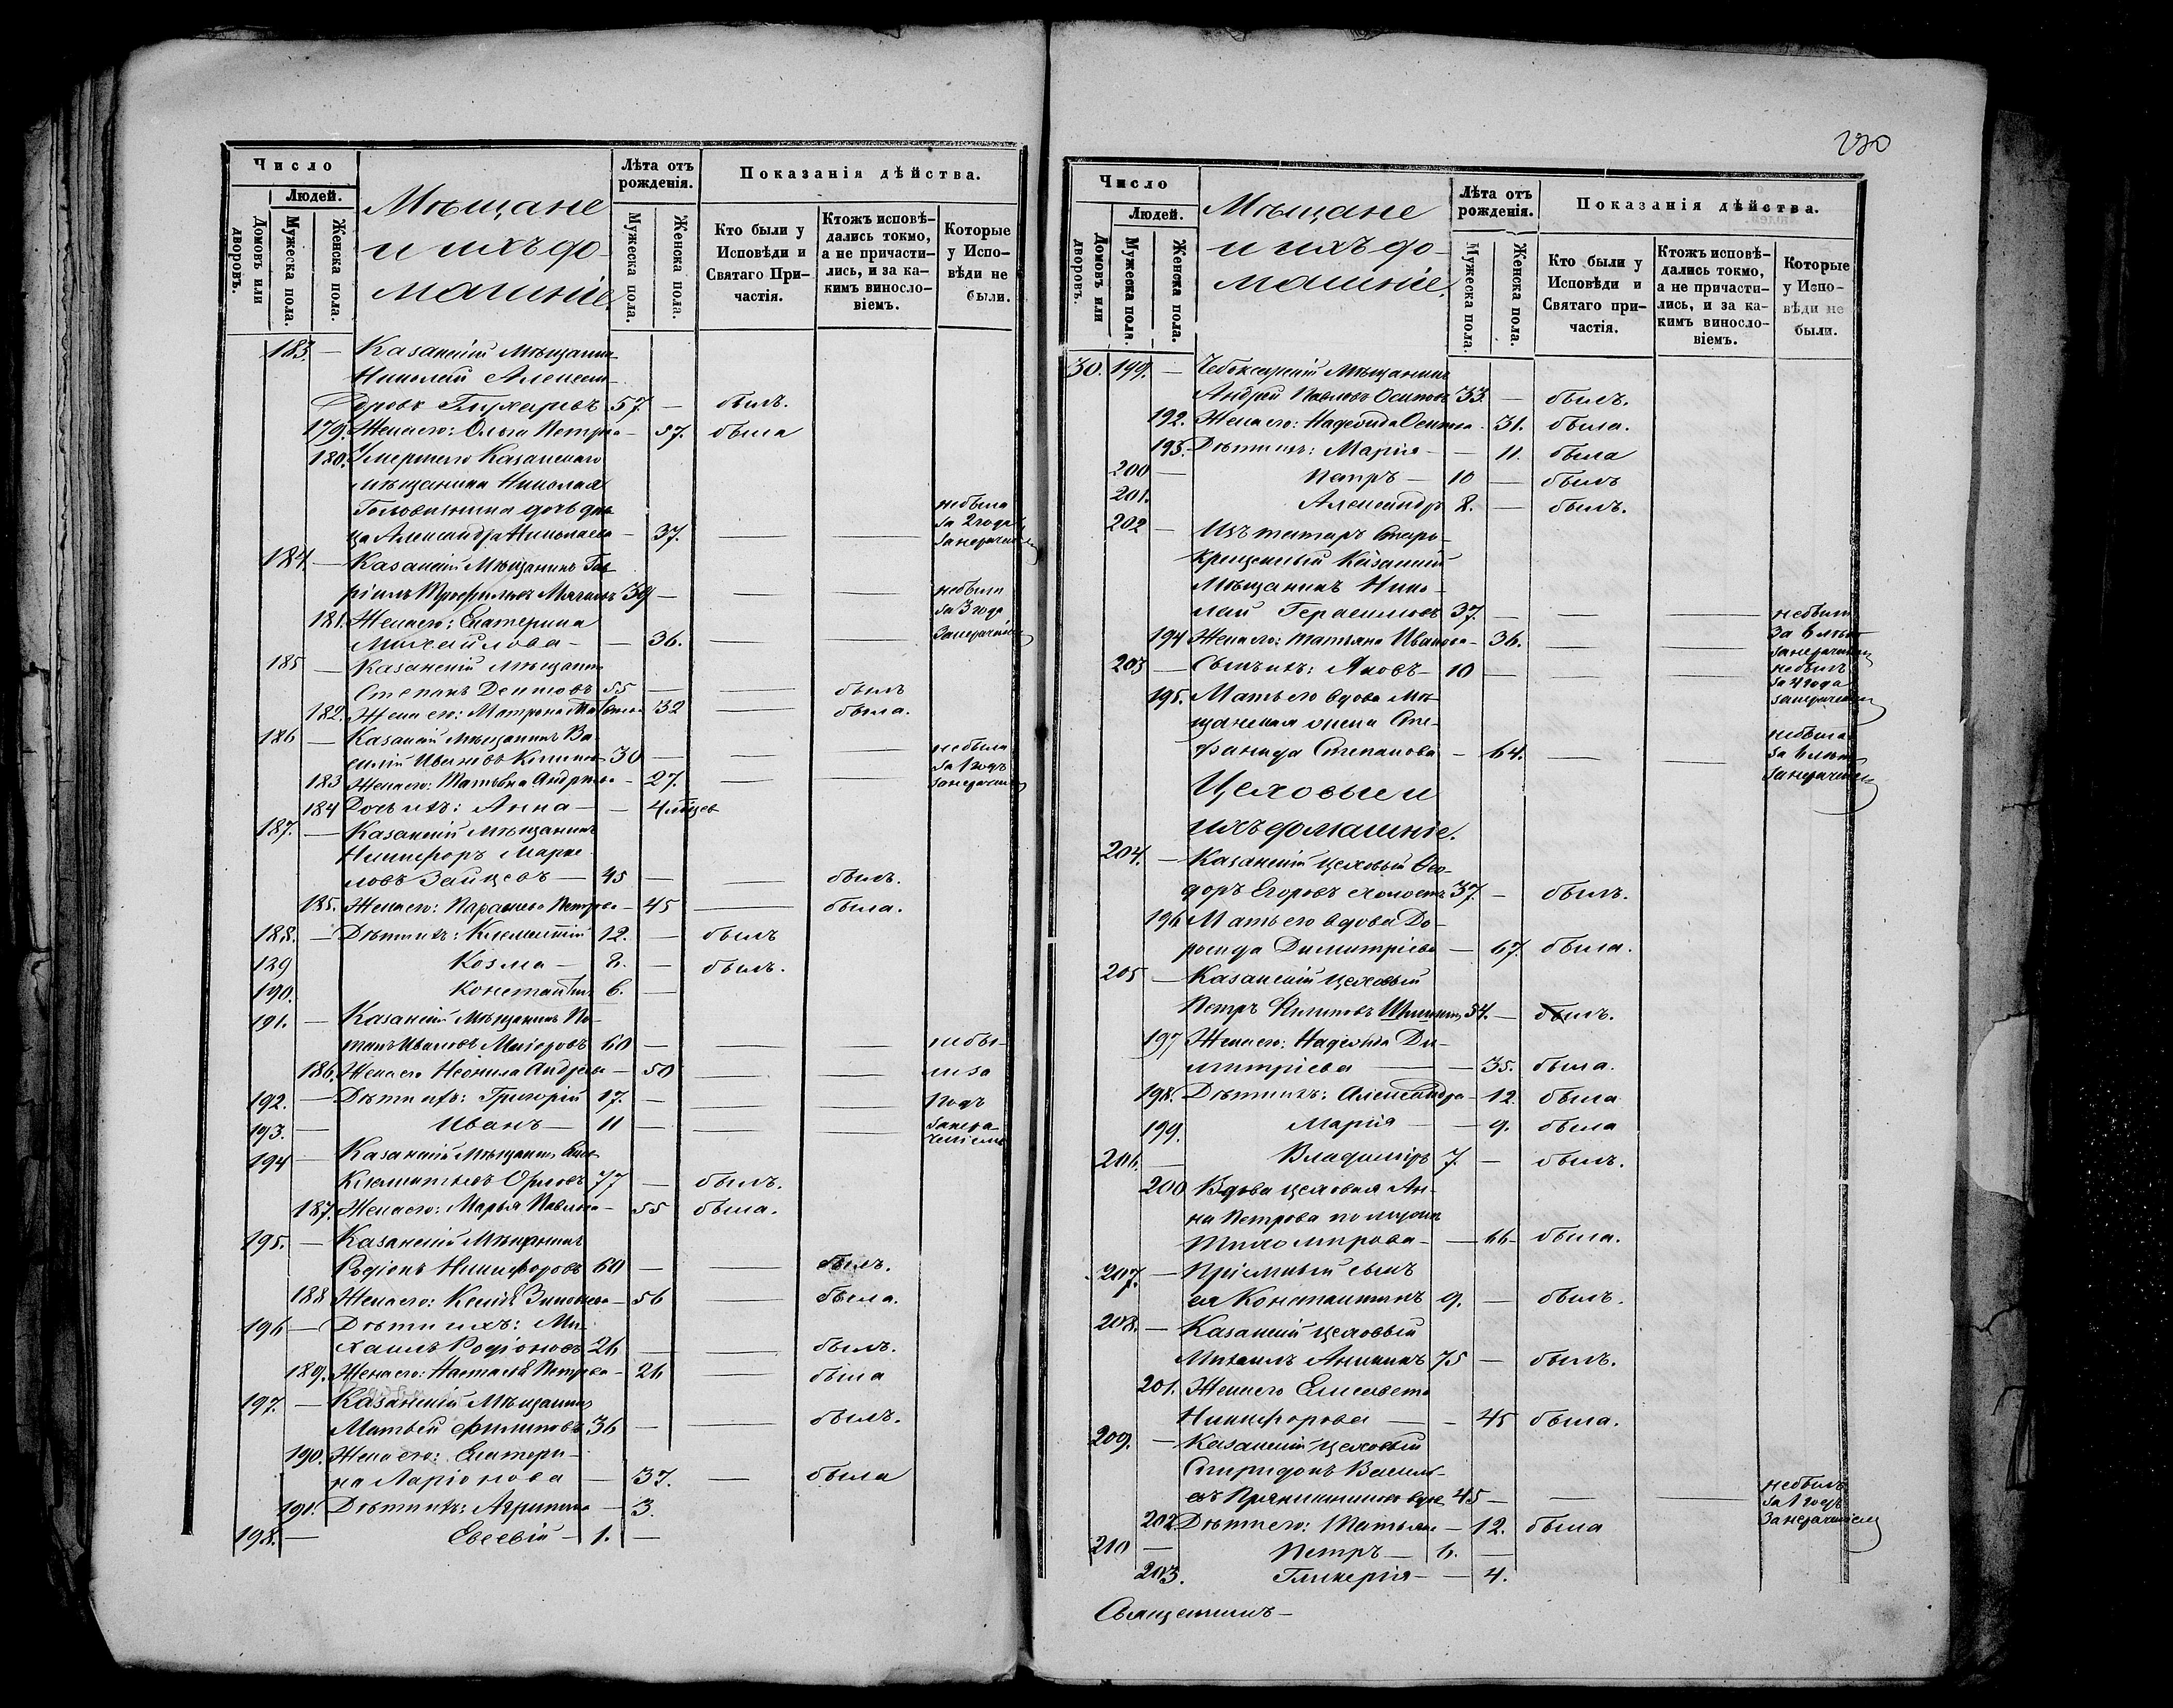 Число
Людей.
Домовъ или дворовъ.
Мужеска пола.
Женска пола.
Мѣщане
и ихъ до-
машніе.
Лѣта отъ рожденія.
Мужеска пола.
Женска пола.
Показанія дѣйства.
Кто были у Исповѣди и Святаго Причастія.
Ктожъ исповѣ-
дались токмо,
а не причасти-
лись, и за ка-
кимъ винослo-
віемъ.
Которые
у Испо-
вѣди не
были.
183. — Казанскій Мѣщанинъ
Николай Алексан-
дровъ 57. — былъ.
179. Жена его: Ольга Петрова — 57. была
180. Умершаго Казанскаго
мѣщанина Николая
дочь дѣви-
ца Александра Николаева — 37. — — небыла за 2 года
184. — Казанскій Мѣщанинъ Гав-
ріилъ 39 — — — небыли за 3 года
181. Жена его: Екатерина
Михайлова — — 36. — —
185 — Казанскій мѣщанинъ
Степанъ 55 — — былъ
182. Жена его: Матрона 32 — была.
186 — Казанскій мѣщанинъ Ва-
силій Ивановъ 30 — — — небыли
183 Жена его: Татьяна Андреева — 27. — за 1 годъ
184 Дочь ихъ: Анна — — 4
187. — Казанскій мѣщанинъ
Никифоръ Марке-
ловъ Зайцевъ — 45 — — былъ.
185. Жена его: Параскева Петрова — 45 — была.
188. — Дѣти ихъ: Климентій 12. — былъ
189 Козма — 8. — былъ.
190. Константинъ 6. —
191. — Казанскій Мѣщанинъ По-
тапъ Ивановъ 60 — — — небы-
186. Жена его Неонила Андреева — 50 — — ли за
192. — Дѣти ихъ: Григорій 17. — — — 1 годъ
193. — Иванъ — 11 — — — занера-
ченіемъ
194 — Казанскій Мѣщанинъ
77 — былъ.
187. Жена его: Марья Павлова — 55 была.
195. — Казанскій Мѣщанинъ
Родіонъ Никифоровъ 60 — — былъ.
188 Жена его: Ксенія 56 — была.
196 — Дѣти ихъ: Ми-
хаилъ Родіоновъ 26 — — былъ.
189. Жена его: Настасія Петрова — 26 — была
197. — Казанскій Мѣщанинъ
Матвѣй Филиповъ 36 — — былъ.
190. Жена его: Екатери-
на Ларіонова — 37. — была
191. Дѣти ихъ: Агрипина — 3.
198. — Евсевій — 1. —
230
Число
Людей.
Домовъ или дворовъ.
Мужеска пола.
Женска пола.
Мѣщане
и ихъ до-
машніе.
Лѣта отъ рожденія.
Мужеска пола.
Женска пола.
Показанія дѣйства.
Кто были у Исповѣди и Святаго причастія.
Ктожъ исповѣ-
дались токмо,
а не причасти-
лись, и за ка-
кимъ винослo-
віемъ.
Которые
у Испо-
вѣди не
были.
30. 199. — Чебоксарскій Мѣщанинъ
Андрей Павловъ Осиповъ 33. — былъ.
192. Жена его: Надежда Осипова. 31. была.
193. Дѣти ихъ: Марія — — 11. была
200 — Петръ — 10 — былъ
201. Александръ 8. — былъ.
202 — Изъ татаръ старо-
крещенный Казанскій
Мѣщанинъ Нико-
лай Герасимовъ 37. — — — небыли
194 Жена его: Татьяна Иванова — 36. — — за 6 лѣтъ
203 — Сынъ ихъ: Яковъ — 10 — — — небылъ за 4 года
195. Мать его вдова Мѣ-
щанская жена Сте-
фанида Степанова — 64. — — небыла за 6 лѣтъ
Цеховые и
ихъ домашніе.
204. — Казанскій цеховый Ѳео-
доръ Егоровъ холостъ 37. — былъ.
196 Мать его вдова До-
росида Димитріева — 67. была.
205 — Казанскій цеховый
Петръ 34. — былъ.
197 Жена его: Надежда Ди-
митріева — — 35. была.
198. Дѣти ихъ: Александра — 12. была
199. Марія — — 9. была
206. — Владиміръ 7. — былъ.
200 Вдова цеховая Ан-
на Петрова по мужѣ
Тихомирова — — 66 была.
207. — Пріемный сынъ
ея Константинъ 9. — былъ.
208. — Казанскій цеховый
Михаилъ Аникинъ 75 — былъ.
201. Жена его Елисавета
Никифорова — — 45 была.
209. — Казанскій цеховый
Спиридонъ Василь-
евъ Прянишниковъ вдов 45 — — — небылъ за 1 годъ
202 Дѣти его: Татьяна — 12. была
210 — Петръ — 6. —
203. Гликерія — — 4.
Священникъ —